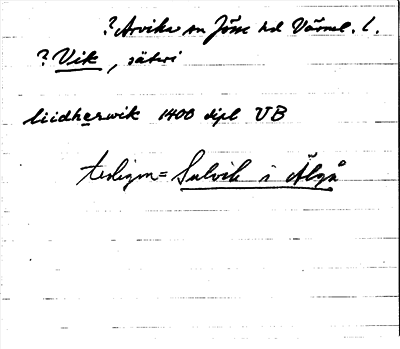 ? Arvika sn Jösse hd Värml. l.
? Vik, säteri
liidherwik 1400 dipl VB
tydligen = Sulvik i Älgå